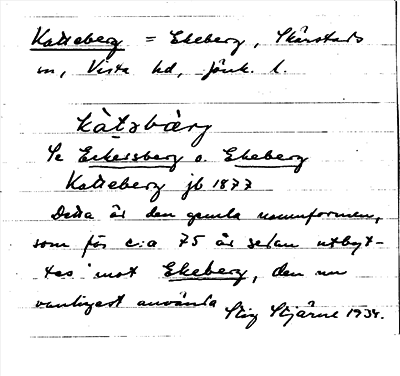 Katteberg = Ekeberg, Skärstads
sn, Vista hd, Jönk. l.
kàtəbàrg
Se Eckersberg o. Ekeberg
Katteberg jb 1877
Detta är den gamla namnformen,
som för c:a 75 år sedan utbyt-
tes mot Ekeberg, den nu
vanligast använda
Stig Stjärne 1934.